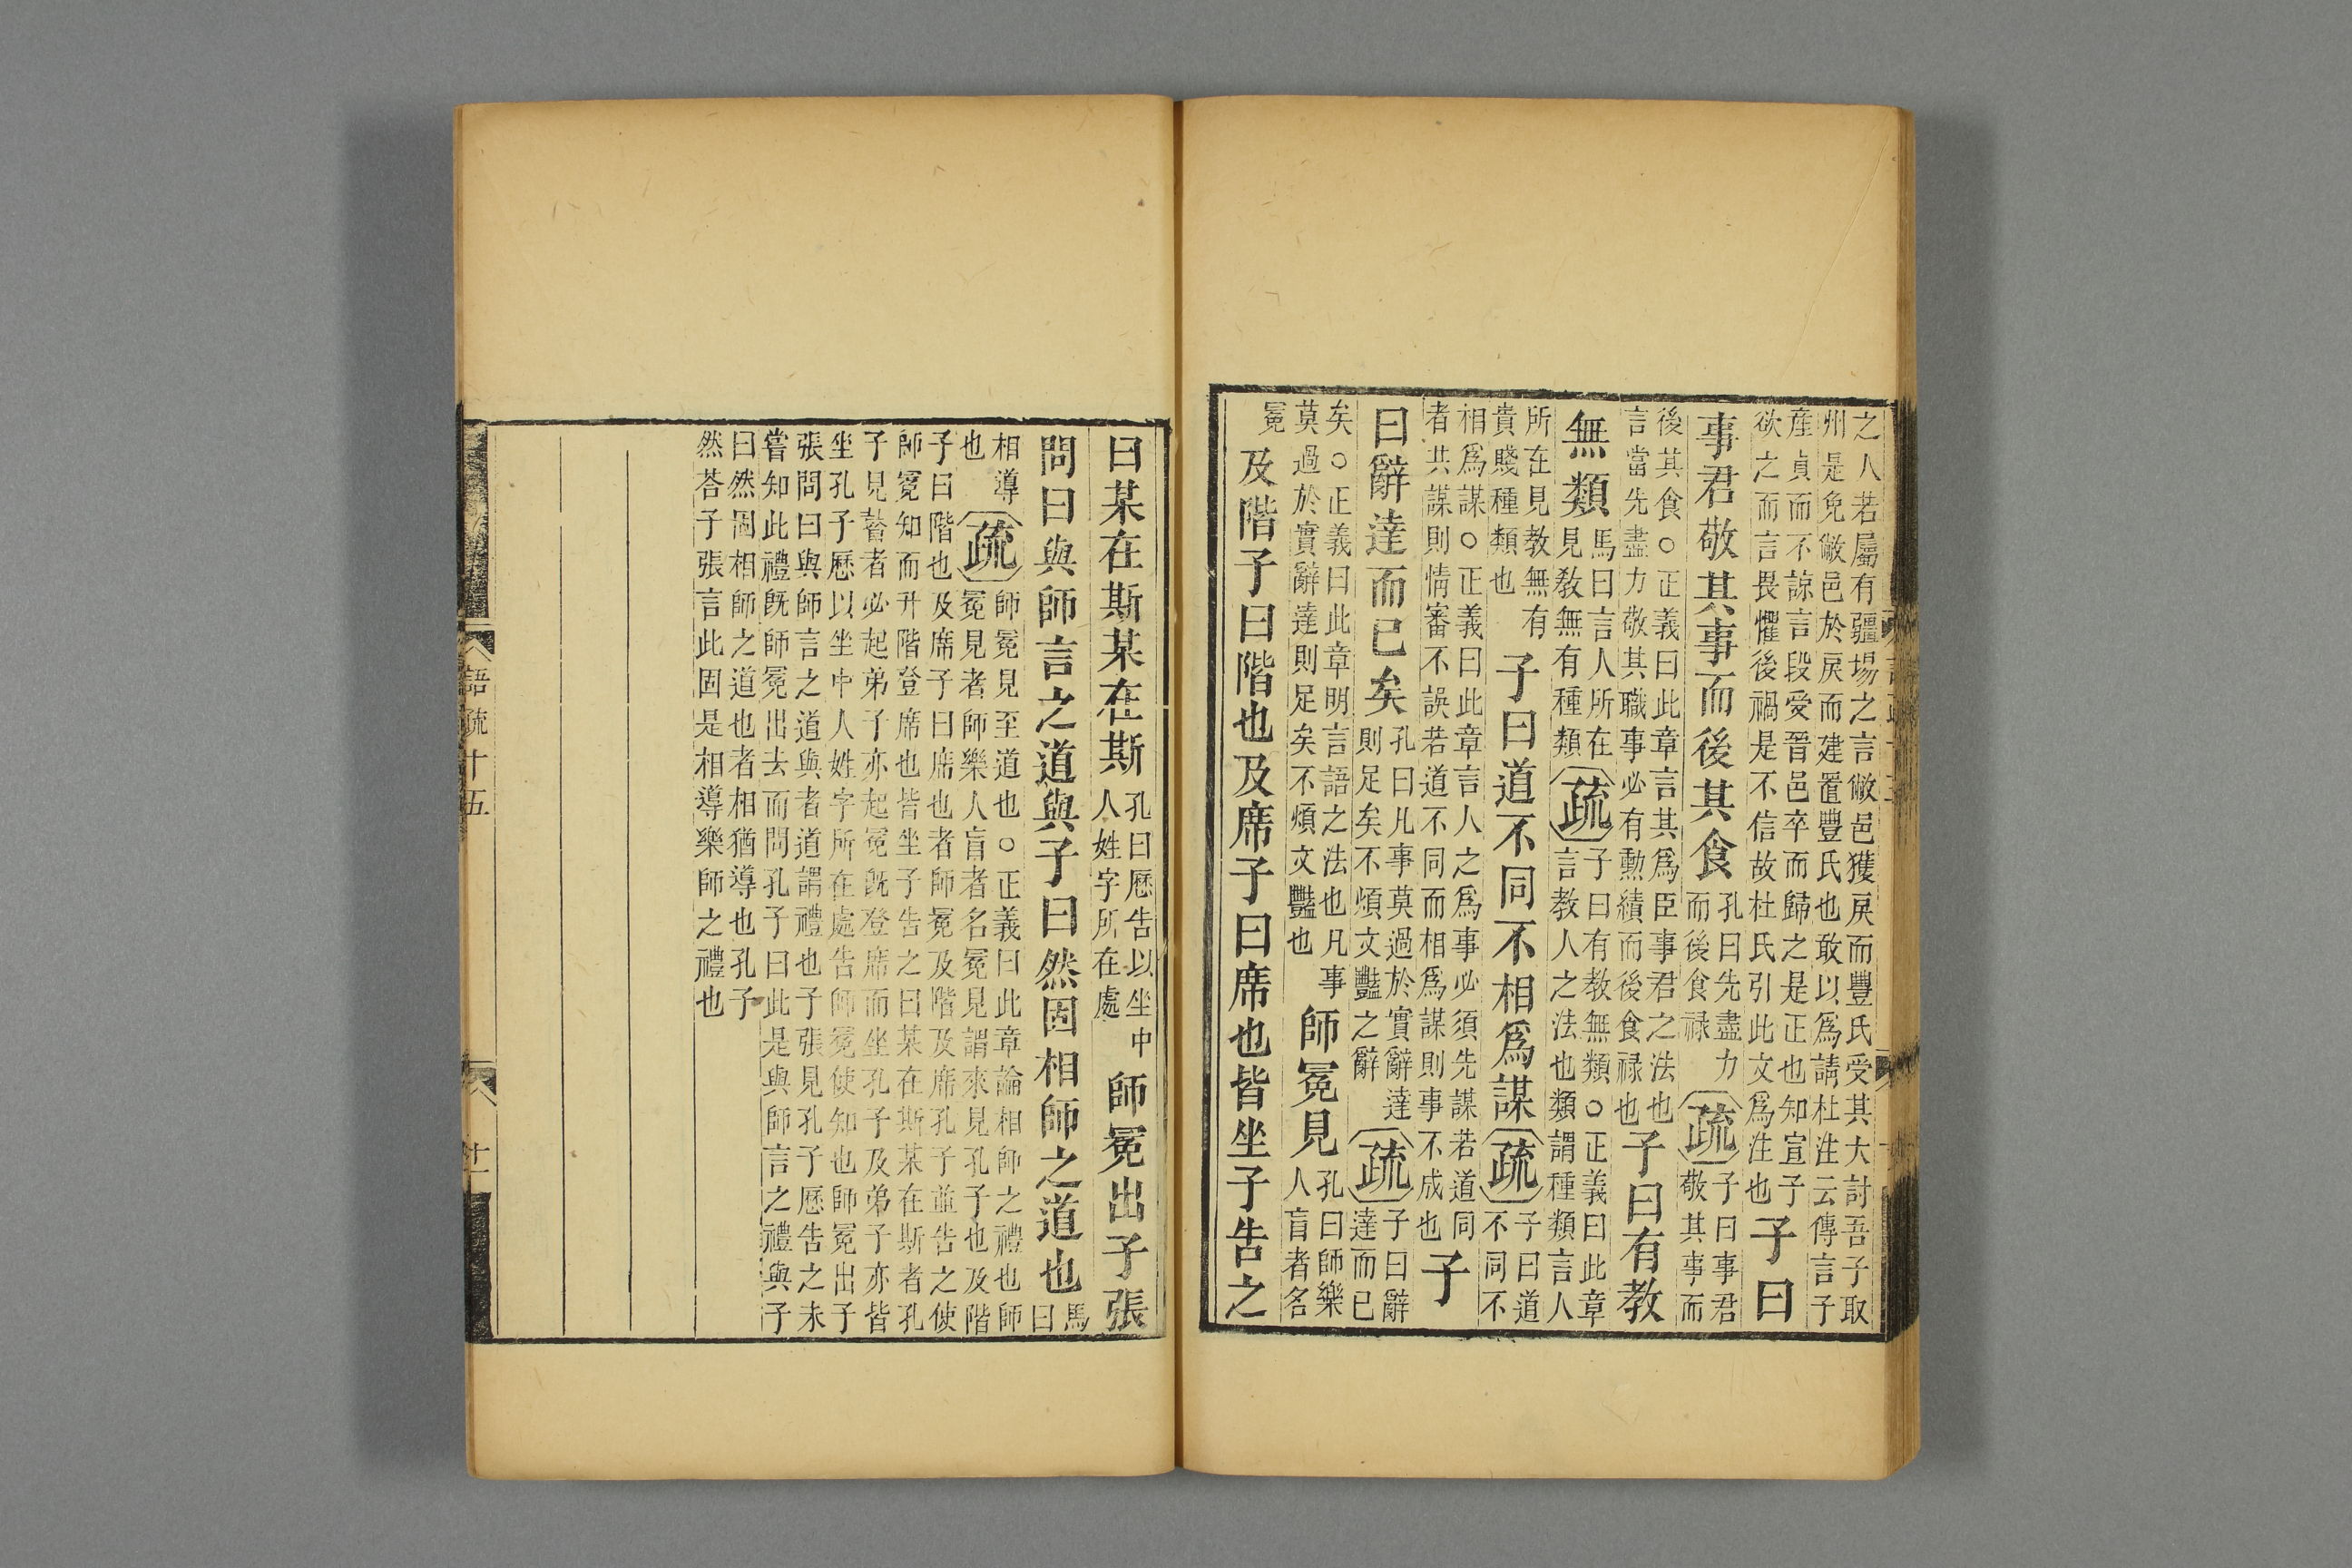 之人若屬有疆場之言敝邑獲戾而豐氏受其大討吾子取
州是免敝邑於戾而建置豐氏也敢以爲請杜注云傳言子
産貞而不諒言段受晉邑卒而歸之是正也知宣子
欲之而言畏懼後禍是不信故杜氏引此文爲注也
子曰
事君敬其事而後其食
孔曰先盡力
而後食祿
疏
子曰事君
敬其事而
後其食○正義曰此章言其爲臣事君之法也
言當先盡力敬其職事必有勳績而後食祿也
子曰有教
無類
馬曰言人所在
見教無有種類
疏
子曰有教無類○正義曰此章
言教人之法也類謂種類言人
所在見教無有
貴賤種類也
子曰道不同不相爲謀
疏
子曰道
不同不
相爲謀○正義曰此章言人之爲事必須先謀若道同
者共謀則情審不誤若道不同而相爲謀則事不成也
子
曰辭達而已矣
孔曰凡事莫過於實辭達
則足矣不煩文豔之辭
疏
子曰辭
達而已
矣○正義曰此章明言語之法也凡事
莫過於實辭達則足矣不煩文豔也
師冕見
孔曰師樂
人盲者名
冕
及階子曰階也及席子曰席也皆坐子告之
曰某在斯某在斯
孔曰歷告以坐中
人姓字所在處
師冕出子張
問曰與師言之道與子曰然固相師之道也
馬
曰
相導
也
疏
師冕見至道也○正義曰此章論相師之禮也師
冕見者師樂人盲者名冕見謂來見孔子也及階
子曰階也及席子曰席也者師冕及階及席孔子並告之使
師冕知而升階登席也皆坐子告之曰某在斯某在斯者孔
子見瞽者必起弟子亦起冕既登席而坐孔子及弟子亦皆
坐孔子歷以坐中人姓字所在處告師冕使知也師冕出子
張問曰與師言之道與者道謂禮也子張見孔子歷告之未
嘗知此禮既師冕出去而問孔子曰此是與師言之禮與子
曰然固相師之道也者相猶導也孔子
然荅子張言此固是相導樂師之禮也
語疏十五